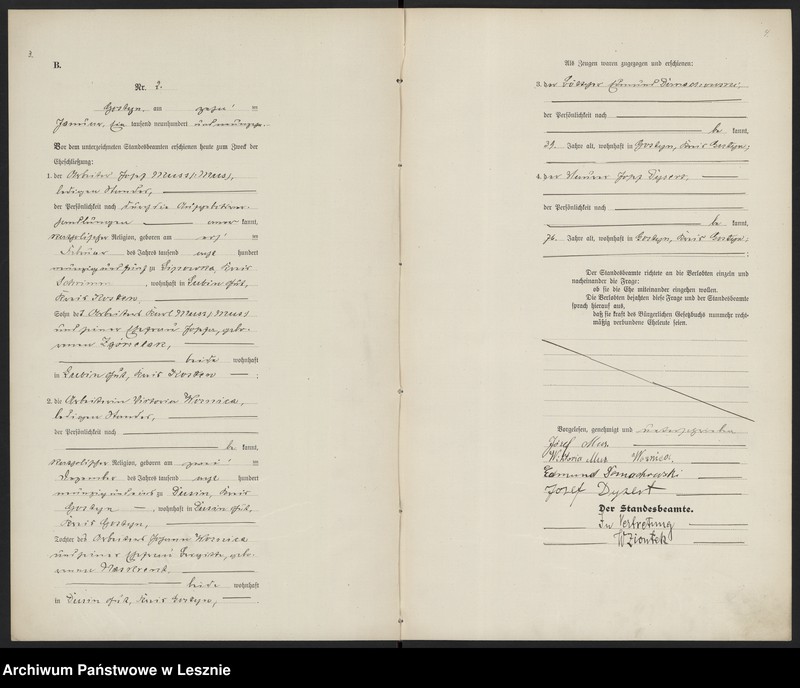 3.
B.
Nr. 2.
Gostyn, am zehnten
Januar, Ein tausend neunhundert und neunzehn.
Vor dem unterzeichneten Standesbeamten erschienen heute zum Zweck der
Eheschließung:
1. der Arbeiter Josef Muss,
ledigen Standes,
der Persönlichkeit nach durch die Aufgebotsver-
handlungen kannt,
katholischer Religion, geboren am
Februar des Jahres tausend acht hundert
neunzig und fünf zu Kreis
Schrimm, wohnhaft in Lubin Gut,
Kreis Kosten,
Sohn des Arbeiters Karl Muss
und seiner Ehefrau gebo-
renen
beide wohnhaft
in Lubin Gut, Kreis Kosten ;
2. die Arbeiterin Victoria Wornica,
ledigen Standes,
der Persönlichkeit nach
be kannt,
katholischer Religion, geboren am zweiten
Dezember des Jahres tausend acht hundert
neunzig zu Dusin, Kreis
Gostyn, wohnhaft in Dusin Gut,
Kreis Gostyn,
Tochter des Arbeiters Johann Wornica
und seiner Ehefrau gebo-
renen
beide wohnhaft
in Dusin Gut, Kreis Gostyn,
Als Zeugen waren zugegen und erschienen:
3. der Edmund Domachowski,
der Persönlichkeit nach
be kannt,
39 Jahre alt, wohnhaft in Gostyn, Kreis Gostyn;
4. der Maurer Josef Dyzert,
der Persönlichkeit nach
be kannt,
76 Jahre alt, wohnhaft in Gostyn, Kreis Gostyn;
Der Standesbeamte richtete an die Verlobten einzeln und
nacheinander die Frage:
ob sie die Ehe miteinander eingehen wollen.
Die Verlobten bejahten diese Frage und der Standesbeamte
sprach hierauf aus,
daß sie kraft des Bürgerlichen Gesetzbuchs nunmehr recht-
mäßig verbundene Eheleute seien.
Vorgelesen, genehmigt und unterschrieben
Józef Mus
Wiktoria Mus Wornica
Edmund Domachowski
Josef Dyzert
Der Standesbeamte.
In Vertretung
WZiontek
Archiwum Państwowe w Lesznie